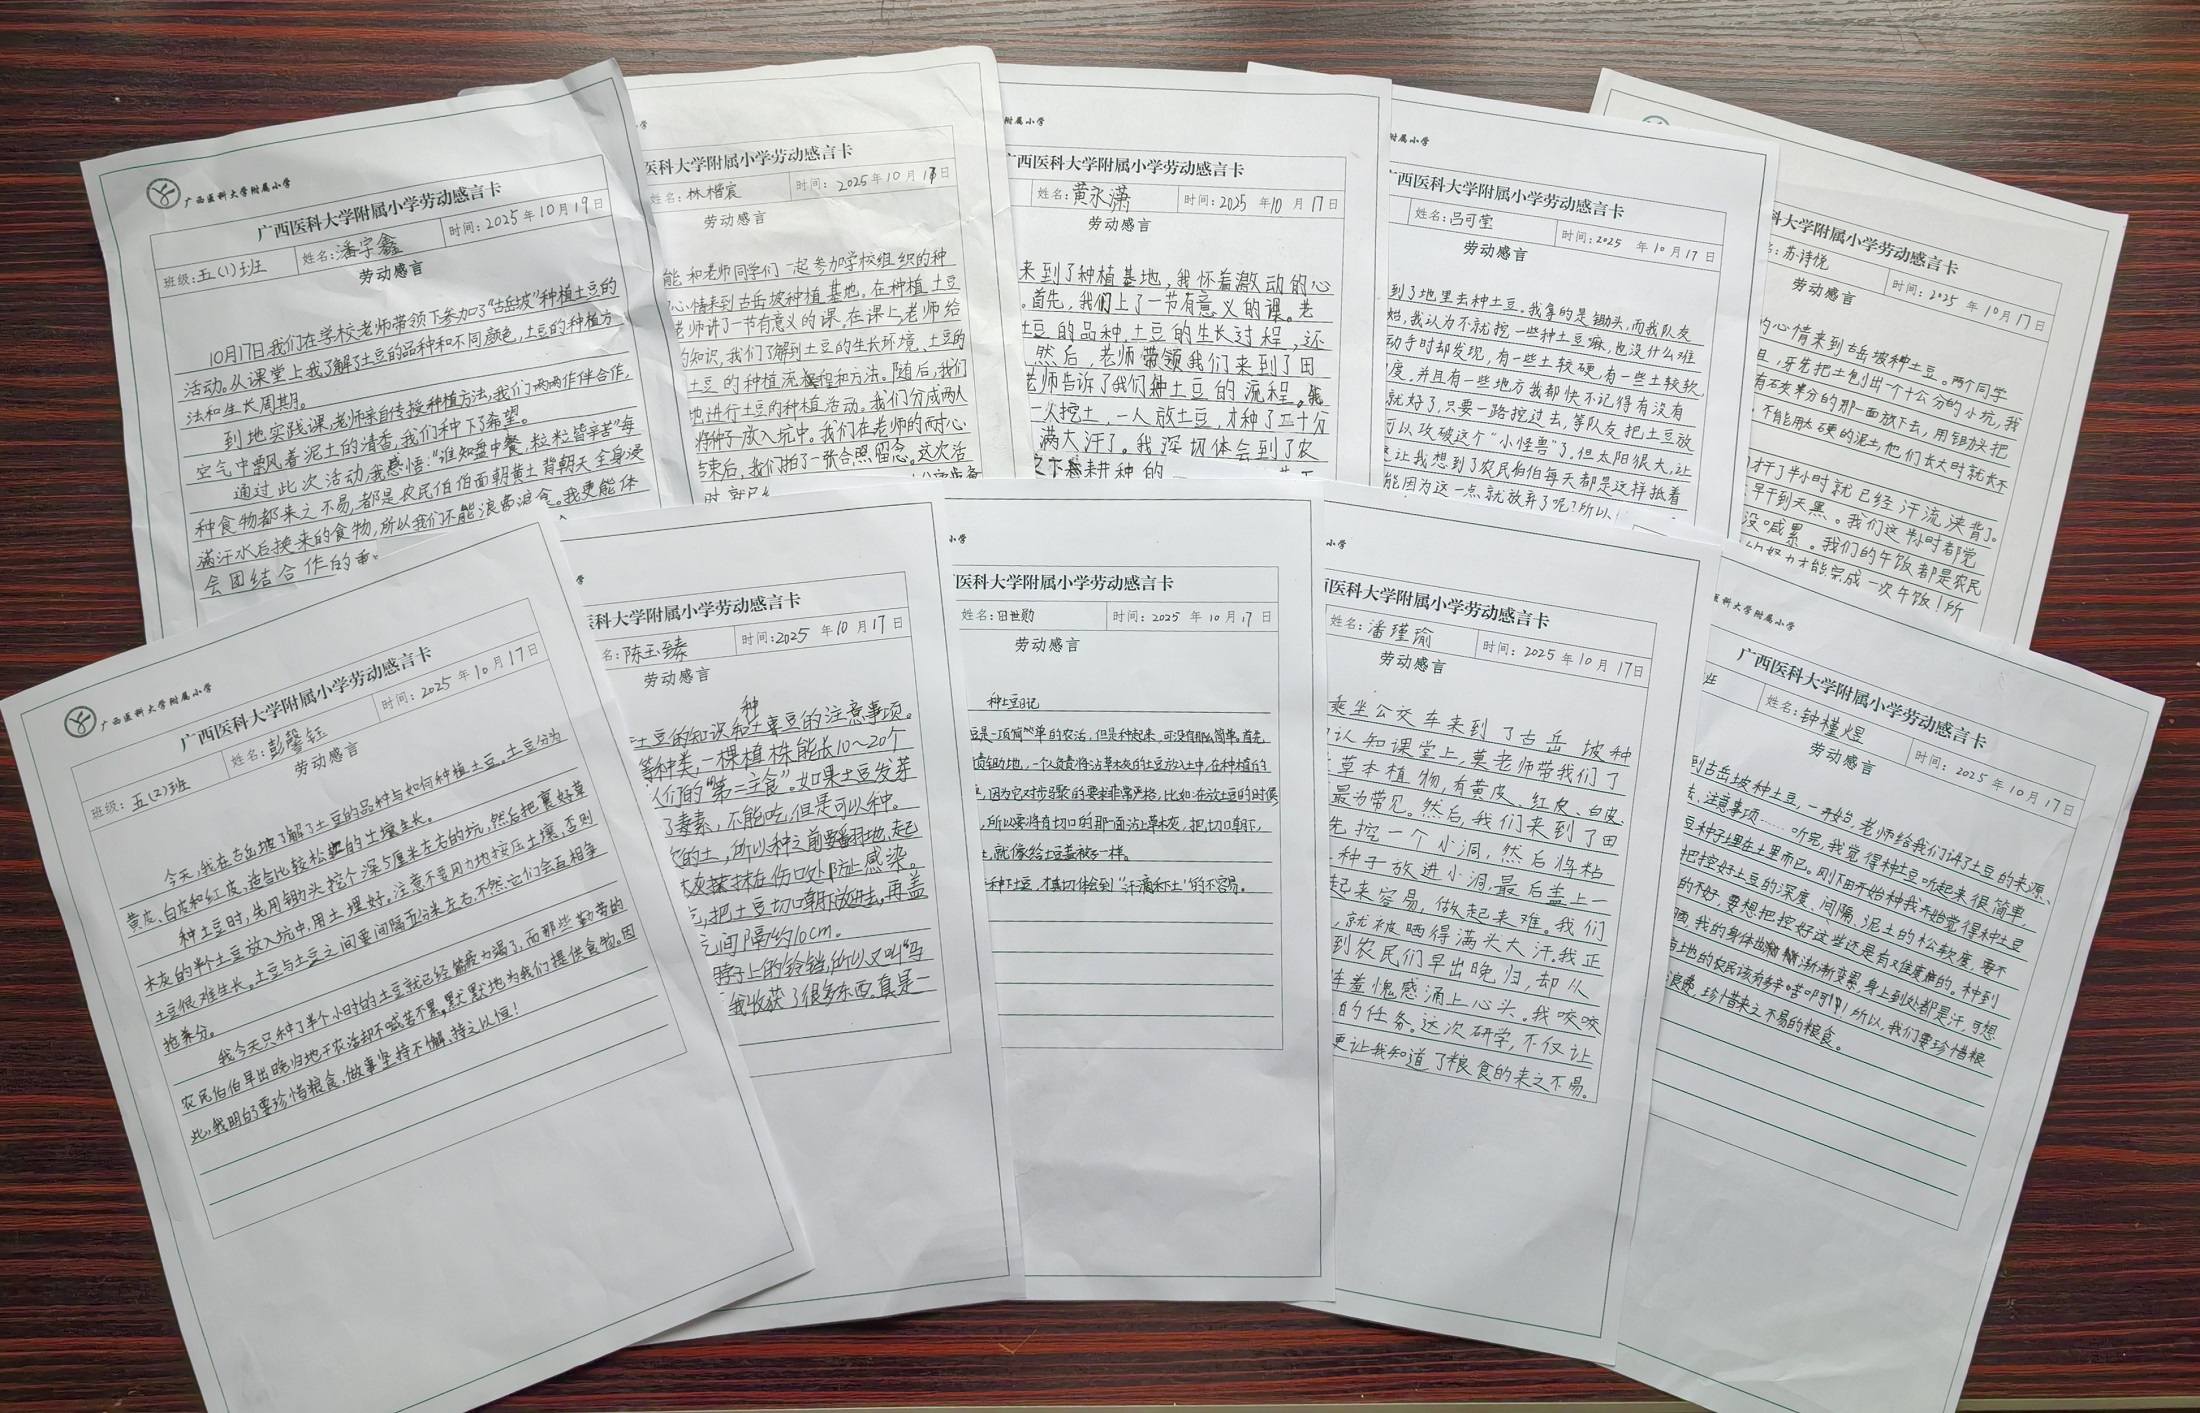 广西医科大学附属小学
广西医科大学附属小学劳动感言卡
班级:五(1)班 姓名:潘宇鑫 时间:2025年10月19日
劳动感言
10月17日我们在学校老师带领下参加了“古岳坡”种植土豆的
活动。从课堂上我了解了土豆的品种和不同颜色,土豆的种植方
法和生长周期。
到地实践课,老师亲自传授种植方法,我们两两作伴合作,
空气中飘风着泥土的清香,我们种下了希望。
通过此次活动,我感悟:“谁知盘中餐,粒粒皆辛苦”每
种食物都来之不易,都是农民伯伯面朝黄土背朝天全身浸
满汗水后换来的食物,所以我们不能浪费粮食。我更能体
会团结合作的重
医科大学附属小学劳动感言卡
姓名:林楷宸 时间:2025年10月18日
劳动感言
能和老师同学们一起参加学校组织的种
心情来到古岳坡种植基地。在种植土豆
老师讲了一节有意义的课。在课上,老师给
的知识,我们了解到土豆的生长环境、土豆的
土豆的种植流程和方法。随后,我们
地进行土豆的种植活动。我们分成两人
将种子放入坑中。我们在老师的耐心
结束后,我们拍了一张合照留念。这次活
附属小学
广西医科大学附属小学劳动感言卡
姓名:黄永潇 时间:2025年10月17日
劳动感言
来到了种植基地,我怀着激动的心
。首先,我们上了一节有意义的课。老
土豆的品种、土豆的生长过程,还
然后,老师带领我们来到了田
老师告诉了我们种土豆的流程。我
一次挖土,一人放土豆,才种了三十分
满大汗了。我深切体会到了农
耕种的
附属小学
广西医科大学附属小学劳动感言卡
姓名:吕可莹 时间:2025年10月17日
劳动感言
到了地里去种土豆。我拿的是锄头,而我队友
始,我认为不就挖一些种土豆嘛,也没什么难
动手时却发现,有一些土较硬,有一些土较软,
度,并且有一些地方我都快不记得有没有
就好了,只要一路挖过去,等队友把土豆放
可以攻破这个“小怪兽”了。但太阳很大,让
让我想到了农民伯伯每天都是这样抵着
能因为这一点就放弃了呢?所以
科大学附属小学劳动感言卡
名:苏诗悦 时间:2025年10月17日
劳动感言
的心情来到古岳坡种土豆。两个同学
且,牙先把土刨出一个十公分的小坑,我
有石灰部分的那一面放下去,用锄头把
,不能用太硬的泥土,他们长大时就长不
才干了半小时就已经汗流浃背了。
早干到天黑。我们这半小时都觉
没喊累。我们的午饭都是农民
的努力才能完成一次午饭!所
广西医科大学附属小学
广西医科大学附属小学劳动感言卡
班级:五(2)班 姓名:彭馨钰 时间:2025年10月17日
劳动感言
今天,我在古岳坡了解了土豆的品种与如何种植土豆。土豆分为
黄皮、白皮和红皮,适合比较松的土壤生长。
种土豆时,先用锄头挖个深5厘米左右的坑,然后把裹好草
木灰的半个土豆放入坑中,用土埋好。注意不要用力地按压土壤,否则
土豆很难生长。土豆与土豆之间要间隔五分米左右,不然它们会互相争
抢养分。
我今天只种了半个小时的土豆就已经筋疲力竭了,而那些勤劳的
农民伯伯早出晚归地干农活却不喊苦不累,默默地为我们提供食物。因
此,我明白了要珍惜粮食,做事坚持不懈、持之以恒!
医科大学附属小学劳动感言卡
名:陈玉臻 时间:2025年10月17日
劳动感言
种
土豆的知识和土豆的注意事项。
等种类,一棵植株能长10～20个
人们的“第三主食”。如果土豆发芽
了毒素,不能吃,但是可以种。
的土,所以种之前要翻地、起
灰抹在伤口处防止感染。
,把土豆切口朝下放进去,再盖
之间隔约10cm。
脖子上的铃铛,所以又叫“马
我收获了很多东西。真是一
小学
医科大学附属小学劳动感言卡
姓名:田世勋 时间:2025年10月17日
劳动感言
种土豆日记
豆是一项简单的农活,但是种起来,可没有那么简单。首先,
责锄地,一个人负责将沾草木灰的土豆放入土中,在种植的
,因为它对步骤的要求非常严格,比如:在放土豆的时候
,所以要将有切口的那一面沾上草木灰,把切口朝下,
,就像给土豆盖被子一样。
种下土豆,才真切体会到“汗滴禾下土”的不容易。
小学
西医科大学附属小学劳动感言卡
姓名:潘瑾瑜 时间:2025年10月17日
劳动感言
乘坐公交车来到了古岳坡种
认知课堂上,莫老师带我们了
草本植物,有黄皮、红皮、白皮
最为常见。然后,我们来到了田
先挖一个小洞,然后将粘
种子放进小洞,最后盖上一
起来容易,做起来难。我们
,就被晒得满头大汗。我正
到农民们早出晚归,却从
阵羞愧感涌上心头。我咬咬
的任务。这次研学,不仅让
更让我知道了粮食的来之不易。
医科大学附属小学
广西医科大学附属小学劳动感言卡
班 姓名:钟槿煜 时间:2025年10月17日
劳动感言
到古岳坡种土豆,一开始,老师给我们讲了土豆的来源、
法、注意事项……听完,我觉得种土豆听起来很简单,
豆种子埋在土里而已。刚下田开始种,我开始觉得种土豆
把控好土豆的深度、间隔、泥土的松软度,要不
的不好,要想把控好这些还是有难度的。种到
晒,我的身体渐渐变累,身上到处都是汗,可想
地的农民该有多辛苦啊!所以,我们要珍惜粮
浪费,珍惜来之不易的粮食。